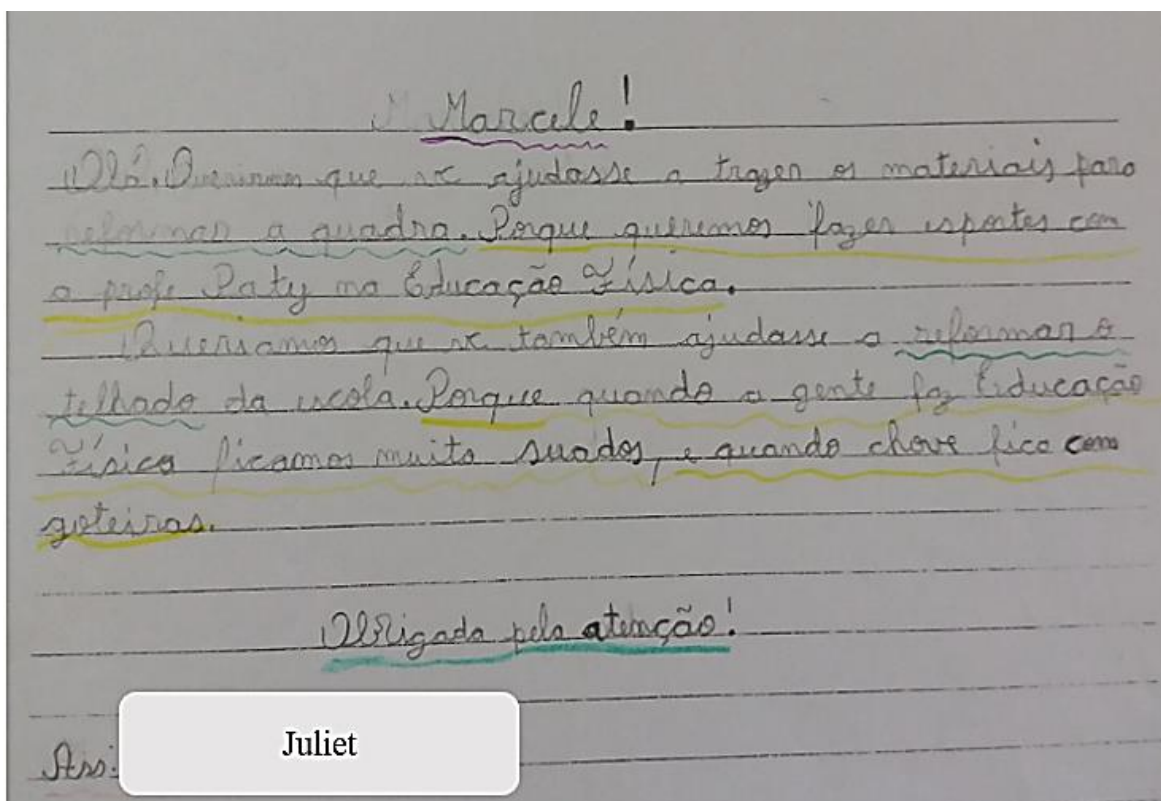 Marcele!
Olá. Queriamos que vc ajudasse a trazer os materiais para
reformar a quadra. Porque queremos fazer esportes com
a profe Paty na Educação Física.
Queriamos que vc também ajudasse a reformar o
telhado da escola. Porque quando a gente faz Educação
Física ficamos muito suados, e quando chove fica com
goteiras.
Obrigada pela atenção!
Ass:
Juliet